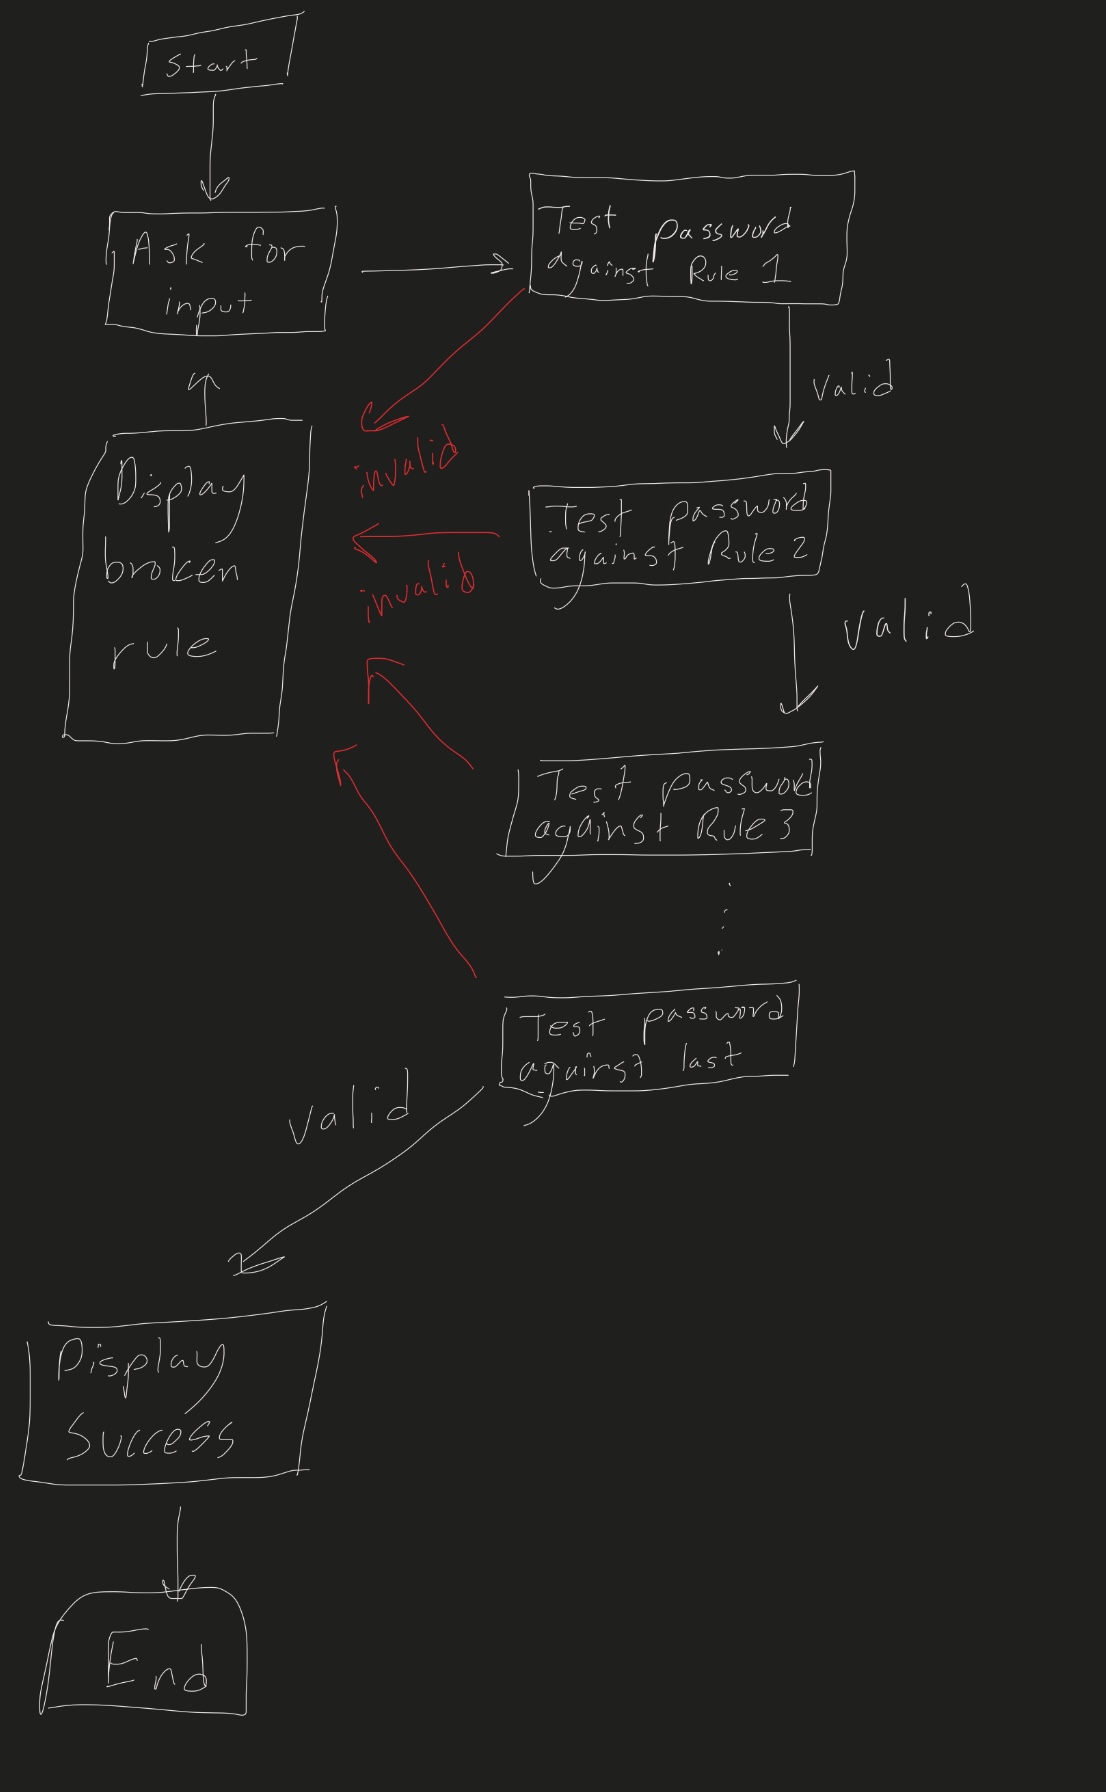 Start
Ask for
input
Test password
against Rule 1
valid
invalid
Display
broken
rule
Test password
against Rule 2
invalid
valid
Test password
against Rule 3
Test password
against last
valid
Display
Success
End